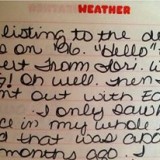 WEATHER
listing to the de
on '96. "Hello"
from Lori. w
! Oh well. Then
out with Ed
I only saw h
ce in my whole
d that was
months ago. I